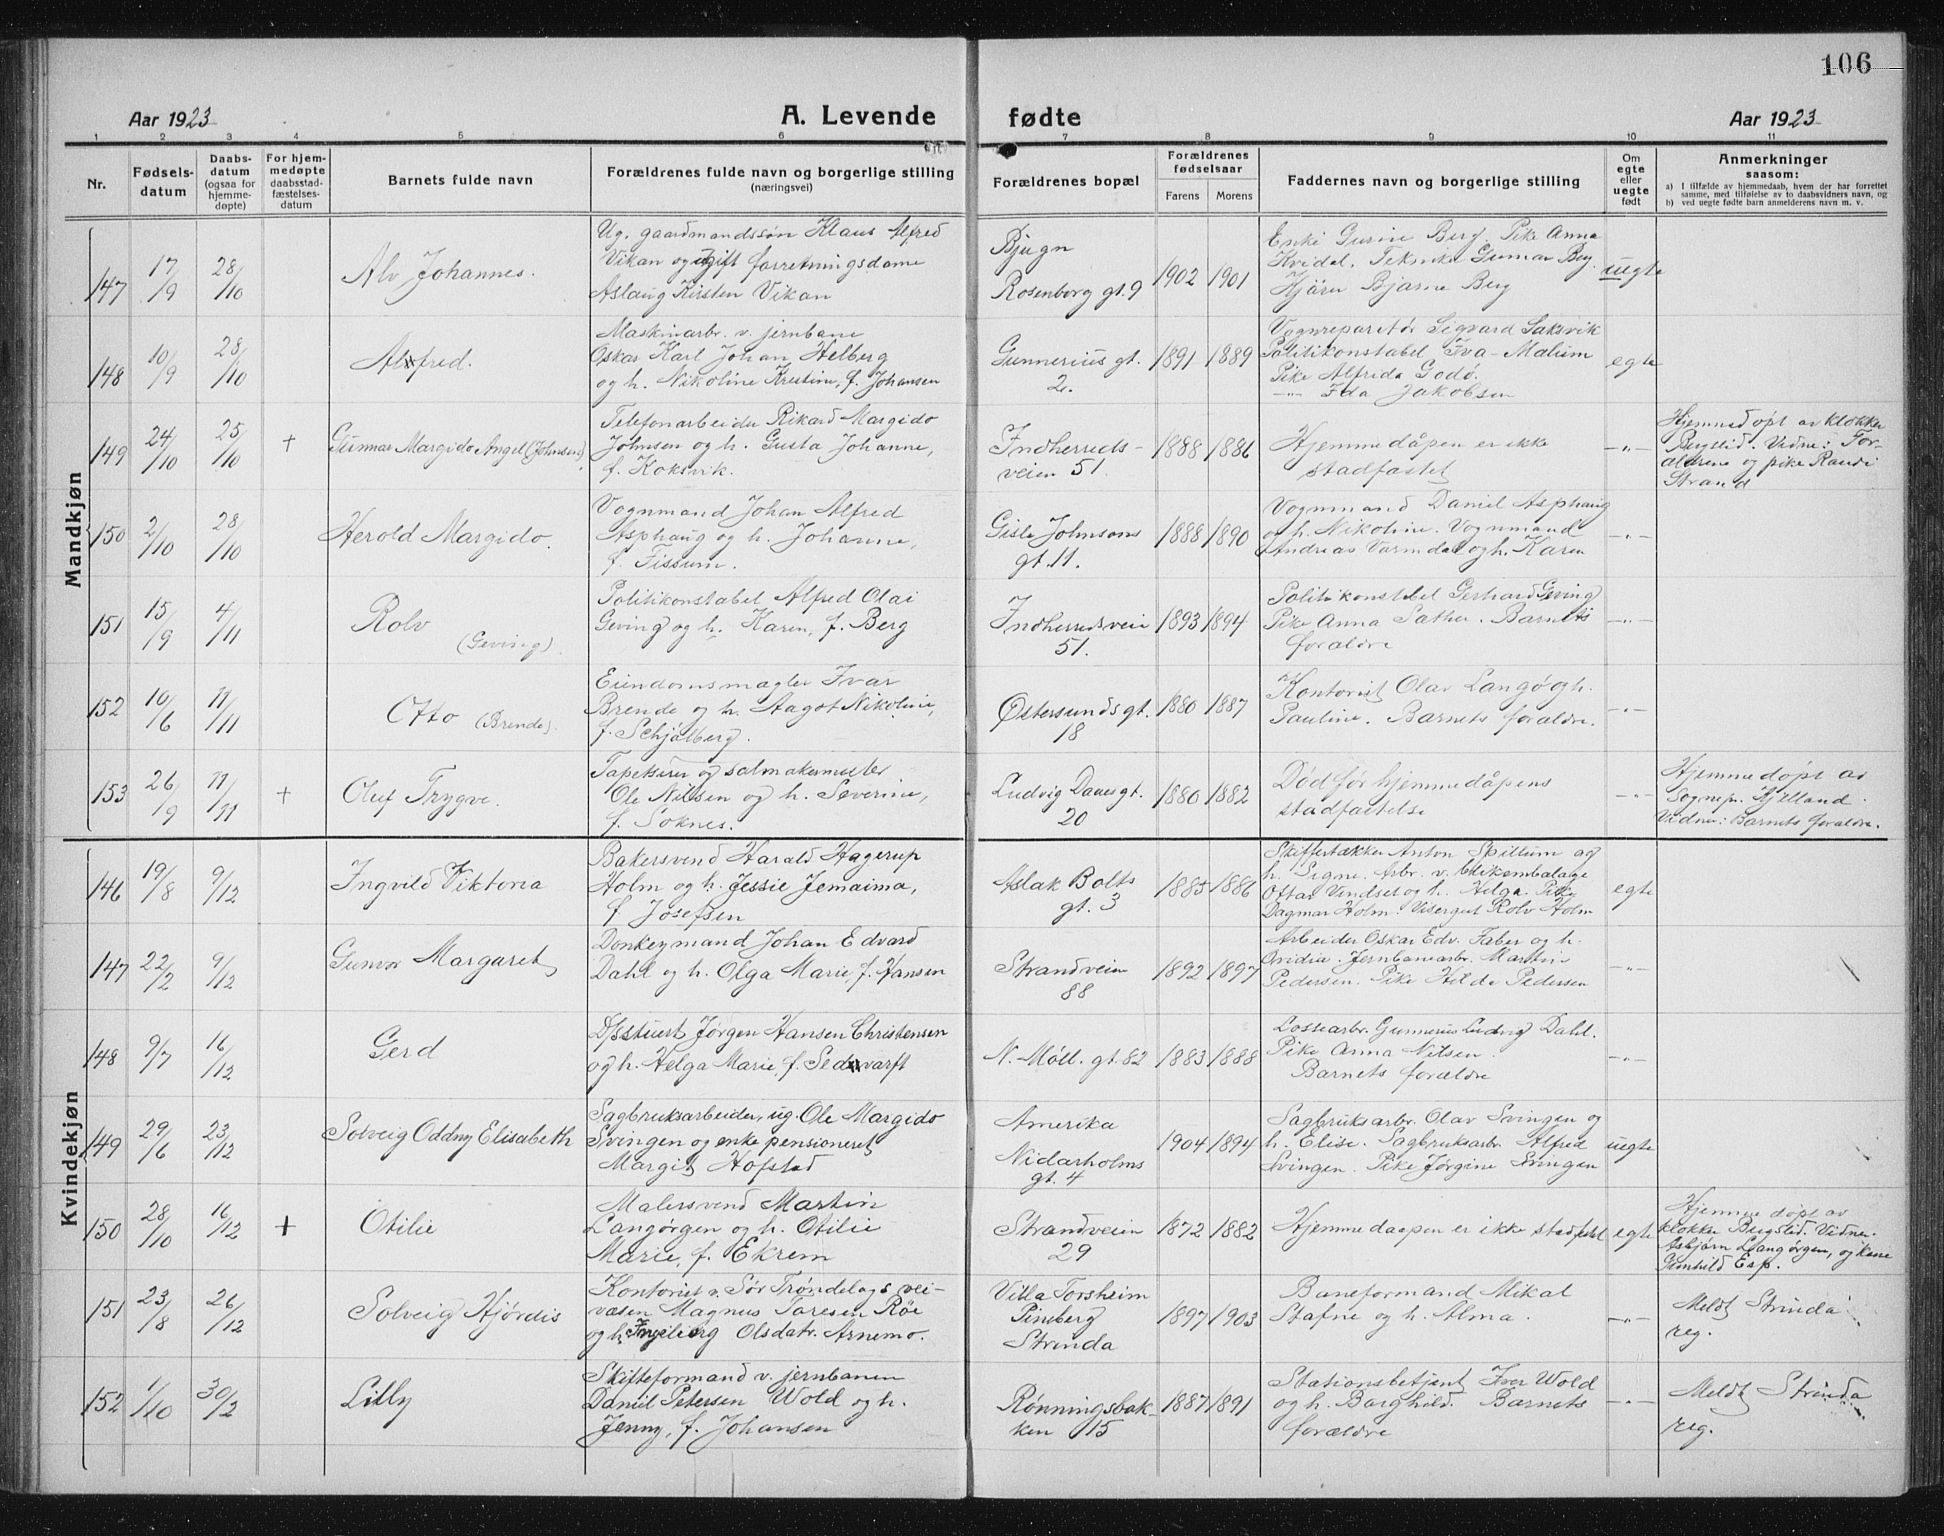 106
Aar 1923
A. Levende
fødte
Aar 1923
1 2 3 4 5 6 7 8 9 10 11
Nr.
Fødsels-
datum
Daabs-
datum
(ogsaa for
hjemme-
døpte)
For hjem-
medøpte
daabsstad-
fæstelses-
datum
Barnets fulde navn
Forældrenes fulde navn og borgerlige stilling
(næringsvei)
Forældrenes bopæl
Forældrenes
fødselsaar
Farens Morens
Faddernes navn og borgerlige stilling
Om
egte
eller
uegte
født
Anmerkninger
saasom:
a) I tilfælde av hjemmedaab, hvem der har forrettet
samme, med tilføielse av to daabsvidners navn, og
b) ved uegte fødte barn anmelderens navn m. v.
Mandkjøn
147 17/9 28/10 Alv Johannes.
Ug. gaardmandssøn Klaus Alfred
Vikan og ugift forretningsdame
Aslaug Kirsten Vikan
Bjugn
Rosenborg gt. 9
1902 1901
Enke Gurine Berg. Pike Anna
Kvidal. Tekniker Gunnar Berg.
Bjarne Berg
uegte
148 10/9 28/10 Alfred.
Maskinarbr. v. jernbane
Oskar Karl Johan Helberg
og h. Nikoline Kristine, f. Johansen
Gunnerius gt.
2.
1891 1889
Vognreparatør Sigvard Saksvik
Politikonstabel Malum
Pike Alfrida Godø.
-"- Ida Jakobsen
egte
149 24/10 25/10 + Gunnar Margido Angel (Johnsen)
Telefonarbeider Rikard Margido
Johnsen og h. Gusta Johanne,
f. Koksvik.
Indherreds-
veien 51.
1888 1886
Hjemmedåpen er ikke
stadfæstet
-"-
Hjemmedøpt av klokker
Bergslid. Vidne: For-
ældrene og pike Randi
Strand
150 2/10 28/10 Herold Margido.
Vognmand Johan Alfred
Asphaug og h. Johanne,
f. Tissum.
Gisle Johnsons
gt. 11.
1888 1890
Vognmand Daniel Asphaug
og h. Nikoline. Vognmand
Andreas Varmdal og h. Karen
-"-
151 15/9 4/11 Rolv
(Geving)
Politikonstabel Alfred Olai
Geving og h. Karen, f. Berg
Indherredsveien
51.
1893 1894
Politikonstabel Gerhard Geving
Pike Anna Sæther. Barnets
forældre
-"-
152 10/6 11/11 Otto (Brende)
Eiendomsmægler Ivar
Brende og h. Aagot Nikoline,
f. Schjølberg.
Østersunds gt.
18
1880 1887
Kontorist Olav Langø og h.
Pauline. Barnets forældre.
-"-
153 26/9 11/11 + Oluf Trygve.
Tapetserer og salmakermester
Ole Nilsen og h. Severine,
f. Soknes.
Ludvig Daaes gt.
20
1880 1882
Død før hjemmedåpens
stadfæstelse
-"-
Hjemmedøpt av
Sognepr. Kjelland.
Vidner: Barnets forældre.
Kvindekjøn
146 19/8 9/12 Ingvild Viktoria
Bakersvend Harald Hagerup
Holm og h. Jessie Jemaima,
f. Josefsen
Aslak Bolts
gt. 3
1885 1886
Skiffertækker Anton Spillum og
h. Signe. Arbr. v. Blikembalage
Ottar Vindset og h. Helga. Pike
Dagmar Holm. Visergut Rolv Holm
egte
147 22/2 9/12 Gunvor Margaret
Donkeymand Johan Edvard
Dahl og h. Olga Marie, f. Hansen
Strandveien
88
1892 1897
Arbeider Oskar Edv. Faber og h.
Ovidie. Jernbanearbr. Martin
Pedersen. Pike Hilda Pedersen
-"-
148 9/7 16/12 Gerd
D/Sstuert Jørgen Hansen Christensen
og h. Helga Marie, f. Sedevarft
N. Møll. gt. 82
1883 1888
Lossearbr. Gunnerius Ludvig Dahl.
Pike Anna Nilsen.
Barnets forældre
-"-
149 29/6 23/12 Solveig Oddny Elisabeth
Sagbruksarbeider, ug. Ole Margido
Svingen og enke pensioneret
Margit Hofstad
Amerika
Nidarholms
gt. 4
1904 1894
Sagbruksarbr. Olav Svingen og
h. Elise. Sagbruksarbr. Alfred
Svingen. Pike Jørgine Svingen
uegte
150 28/10 16/12 + Otilie
Malersvend Martin
Langørgen og h. Otilie
Marie, f. Ekrem
Strandveien
29
1872 1882
Hjemmedaapen er ikke stadfestet
egte
Hjemmedøpt av
klokker Bergslid. Vidner
Asbjørn Langørgen, og kone
Gunhild Esp.
151 23/8 26/12 Solveig Hjørdis
Kontorist v. Sør Trøndelags vei-
væsen Magnus Taresen Röe
og h. Ingeborg Olsdatr. Arnemo.
Villa Torsheim
Pineberg
Strinda
1897 1903
Baneformand Mikal
Stafne og h. Alma.
-"-
Meldt Strinda
reg.
152 1/10 30/12 Lilly
Skifteformand v. jernbanen
Daniel Petersen Wold og h.
Jenny, f. Johansen
Rønningsbak-
ken 15
1887 1891
Stationsbetjent Iver Wold
og h. Borghild. Barnets
forældre
-"-
Meldt Strinda
reg.